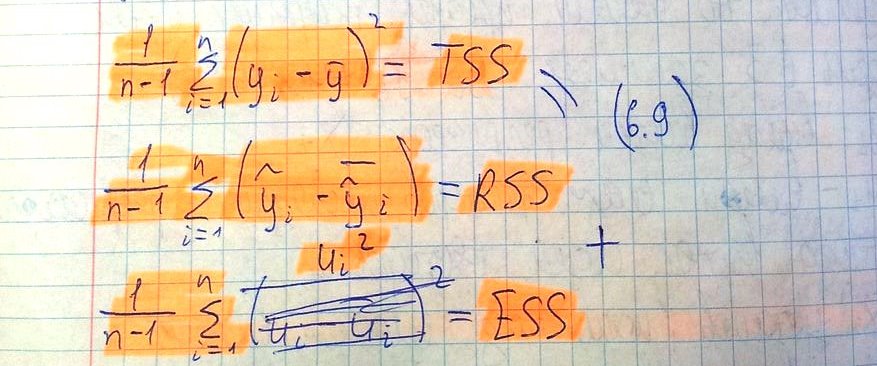 1/(n-1) ∑_{i=1}^{n} (y_i - ȳ)² = TSS
\\ (6.9)
1/(n-1) ∑_{i=1}^{n} (ỹ_i - \overline{ỹ}_i) = RSS
+
u_i²
1/(n-1) ∑_{i=1}^{n} (u_i - u_i)² = ESS